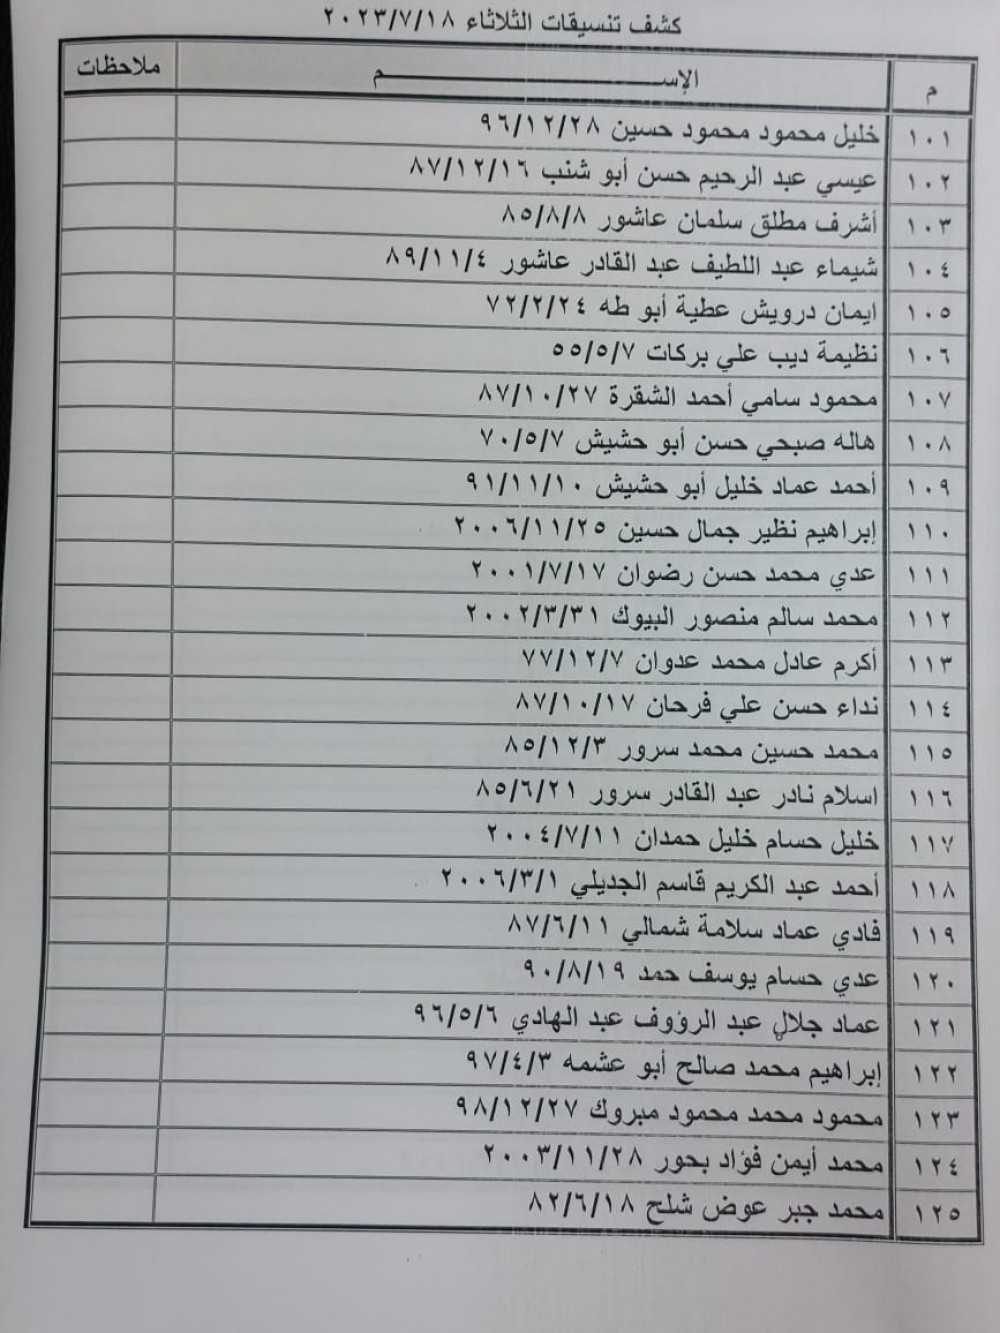 كشف تنسيقات الثلاثاء ٢٠٢٣/٧/١٨
م الإســـــــــم ملاحظات
١٠١ خليل محمود محمود حسين ٩٦/١٢/٢٨
١٠٢ عيسي عبد الرحيم حسن أبو شنب ٨٧/١٢/١٦
١٠٣ أشرف مطلق سلمان عاشور ٨٥/٨/٨
١٠٤ شيماء عبد اللطيف عبد القادر عاشور ٨٩/١١/٤
١٠٥ ايمان درويش عطية أبو طه ٧٢/٢/٢٤
١٠٦ نظيمة ديب علي بركات ٥٥/٥/٧
١٠٧ محمود سامي أحمد الشقرة ٨٧/١٠/٢٧
١٠٨ هاله صبحي حسن أبو حشيش ٧٠/٥/٧
١٠٩ أحمد عماد خليل أبو حشيش ٩١/١١/١٠
١١٠ إبراهيم نظير جمال حسين ٢٠٠٦/١١/٢٥
١١١ عدي محمد حسن رضوان ٢٠٠١/٧/١٧
١١٢ محمد سالم منصور البيوك ٢٠٠٢/٣/٣١
١١٣ أكرم عادل محمد عدوان ٧٧/١٢/٧
١١٤ نداء حسن علي فرحان ٨٧/١٠/١٧
١١٥ محمد حسين محمد سرور ٨٥/١٢/٣
١١٦ اسلام نادر عبد القادر سرور ٨٥/٦/٢١
١١٧ خليل حسام خليل حمدان ٢٠٠٤/٧/١١
١١٨ أحمد عبد الكريم قاسم الجديلي ٢٠٠٦/٣/١
١١٩ فادي عماد سلامة شمالي ٨٧/٦/١١
١٢٠ عدي حسام يوسف حمد ٩٠/٨/١٩
١٢١ عماد جلال عبد الرؤوف عبد الهادي ٩٦/٥/٦
١٢٢ إبراهيم محمد صالح أبو عشمه ٩٧/٤/٣
١٢٣ محمود محمد محمود مبروك ٩٨/١٢/٢٧
١٢٤ محمد أيمن فؤاد بحور ٢٠٠٣/١١/٢٨
١٢٥ محمد جبر عوض شلح ٨٢/٦/١٨